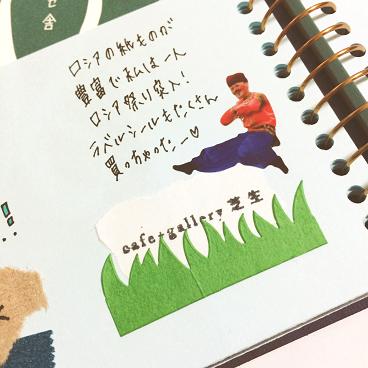 ロシアの紙ものが
豊富で私は一人
ロシア祭り突入!
ラベルシールもたくさん
買っちゃったー♡
cafe+gallery 芝生
舎
!